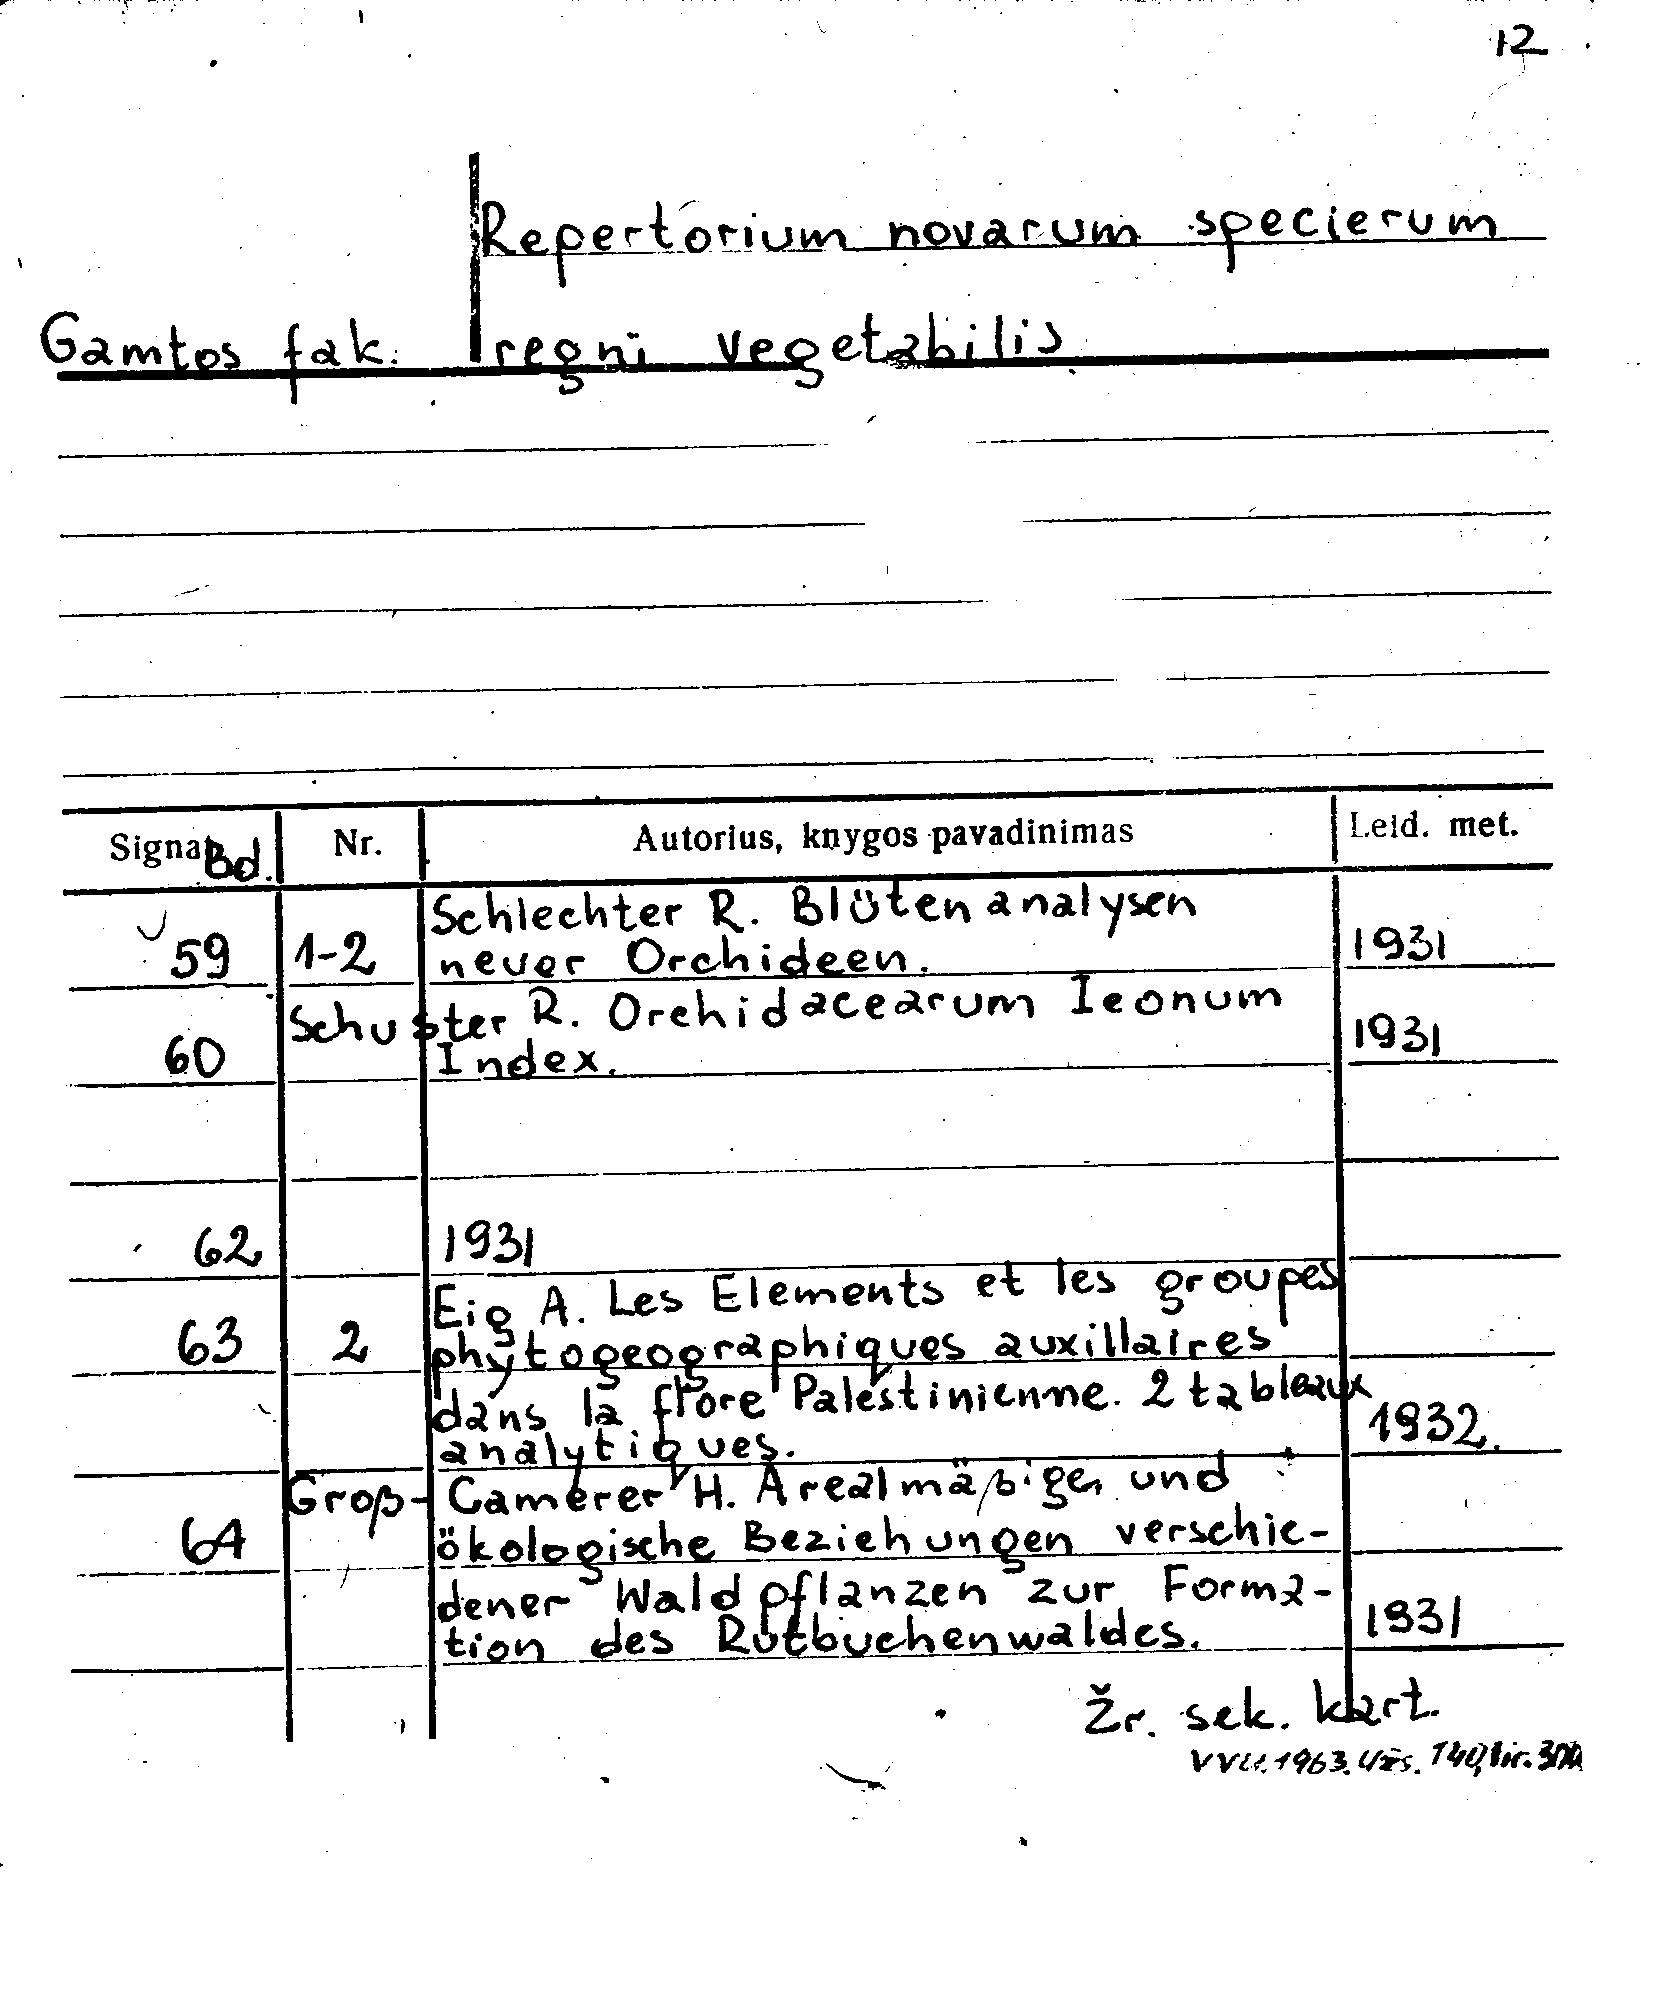 12
Repertorium novarum specierum
Gamtos fak. regni vegetabilis
Signat. Bd. Nr. Autorius, knygos pavadinimas Leid. met.
Schlechter R. Blütenanalysen
59 1-2 neuer Orchideen. 1931
Schuster R. Orchidacearum Iconum
60 Index. 1931
62 1931
Eig A. Les Elements et les groupes
63 2 phytogeographiques auxillaires
dans la flore Palestinienne. 2 tableaux
analytiques. 1932.
Groß-Camerer H. Arealmäßige und
64 ökologische Beziehungen verschie-
dener Waldpflanzen zur Forma-
tion des Rotbuchenwaldes. 1931
Žr. sek. kart.
VVU. 1963. Užs. 140, tir.